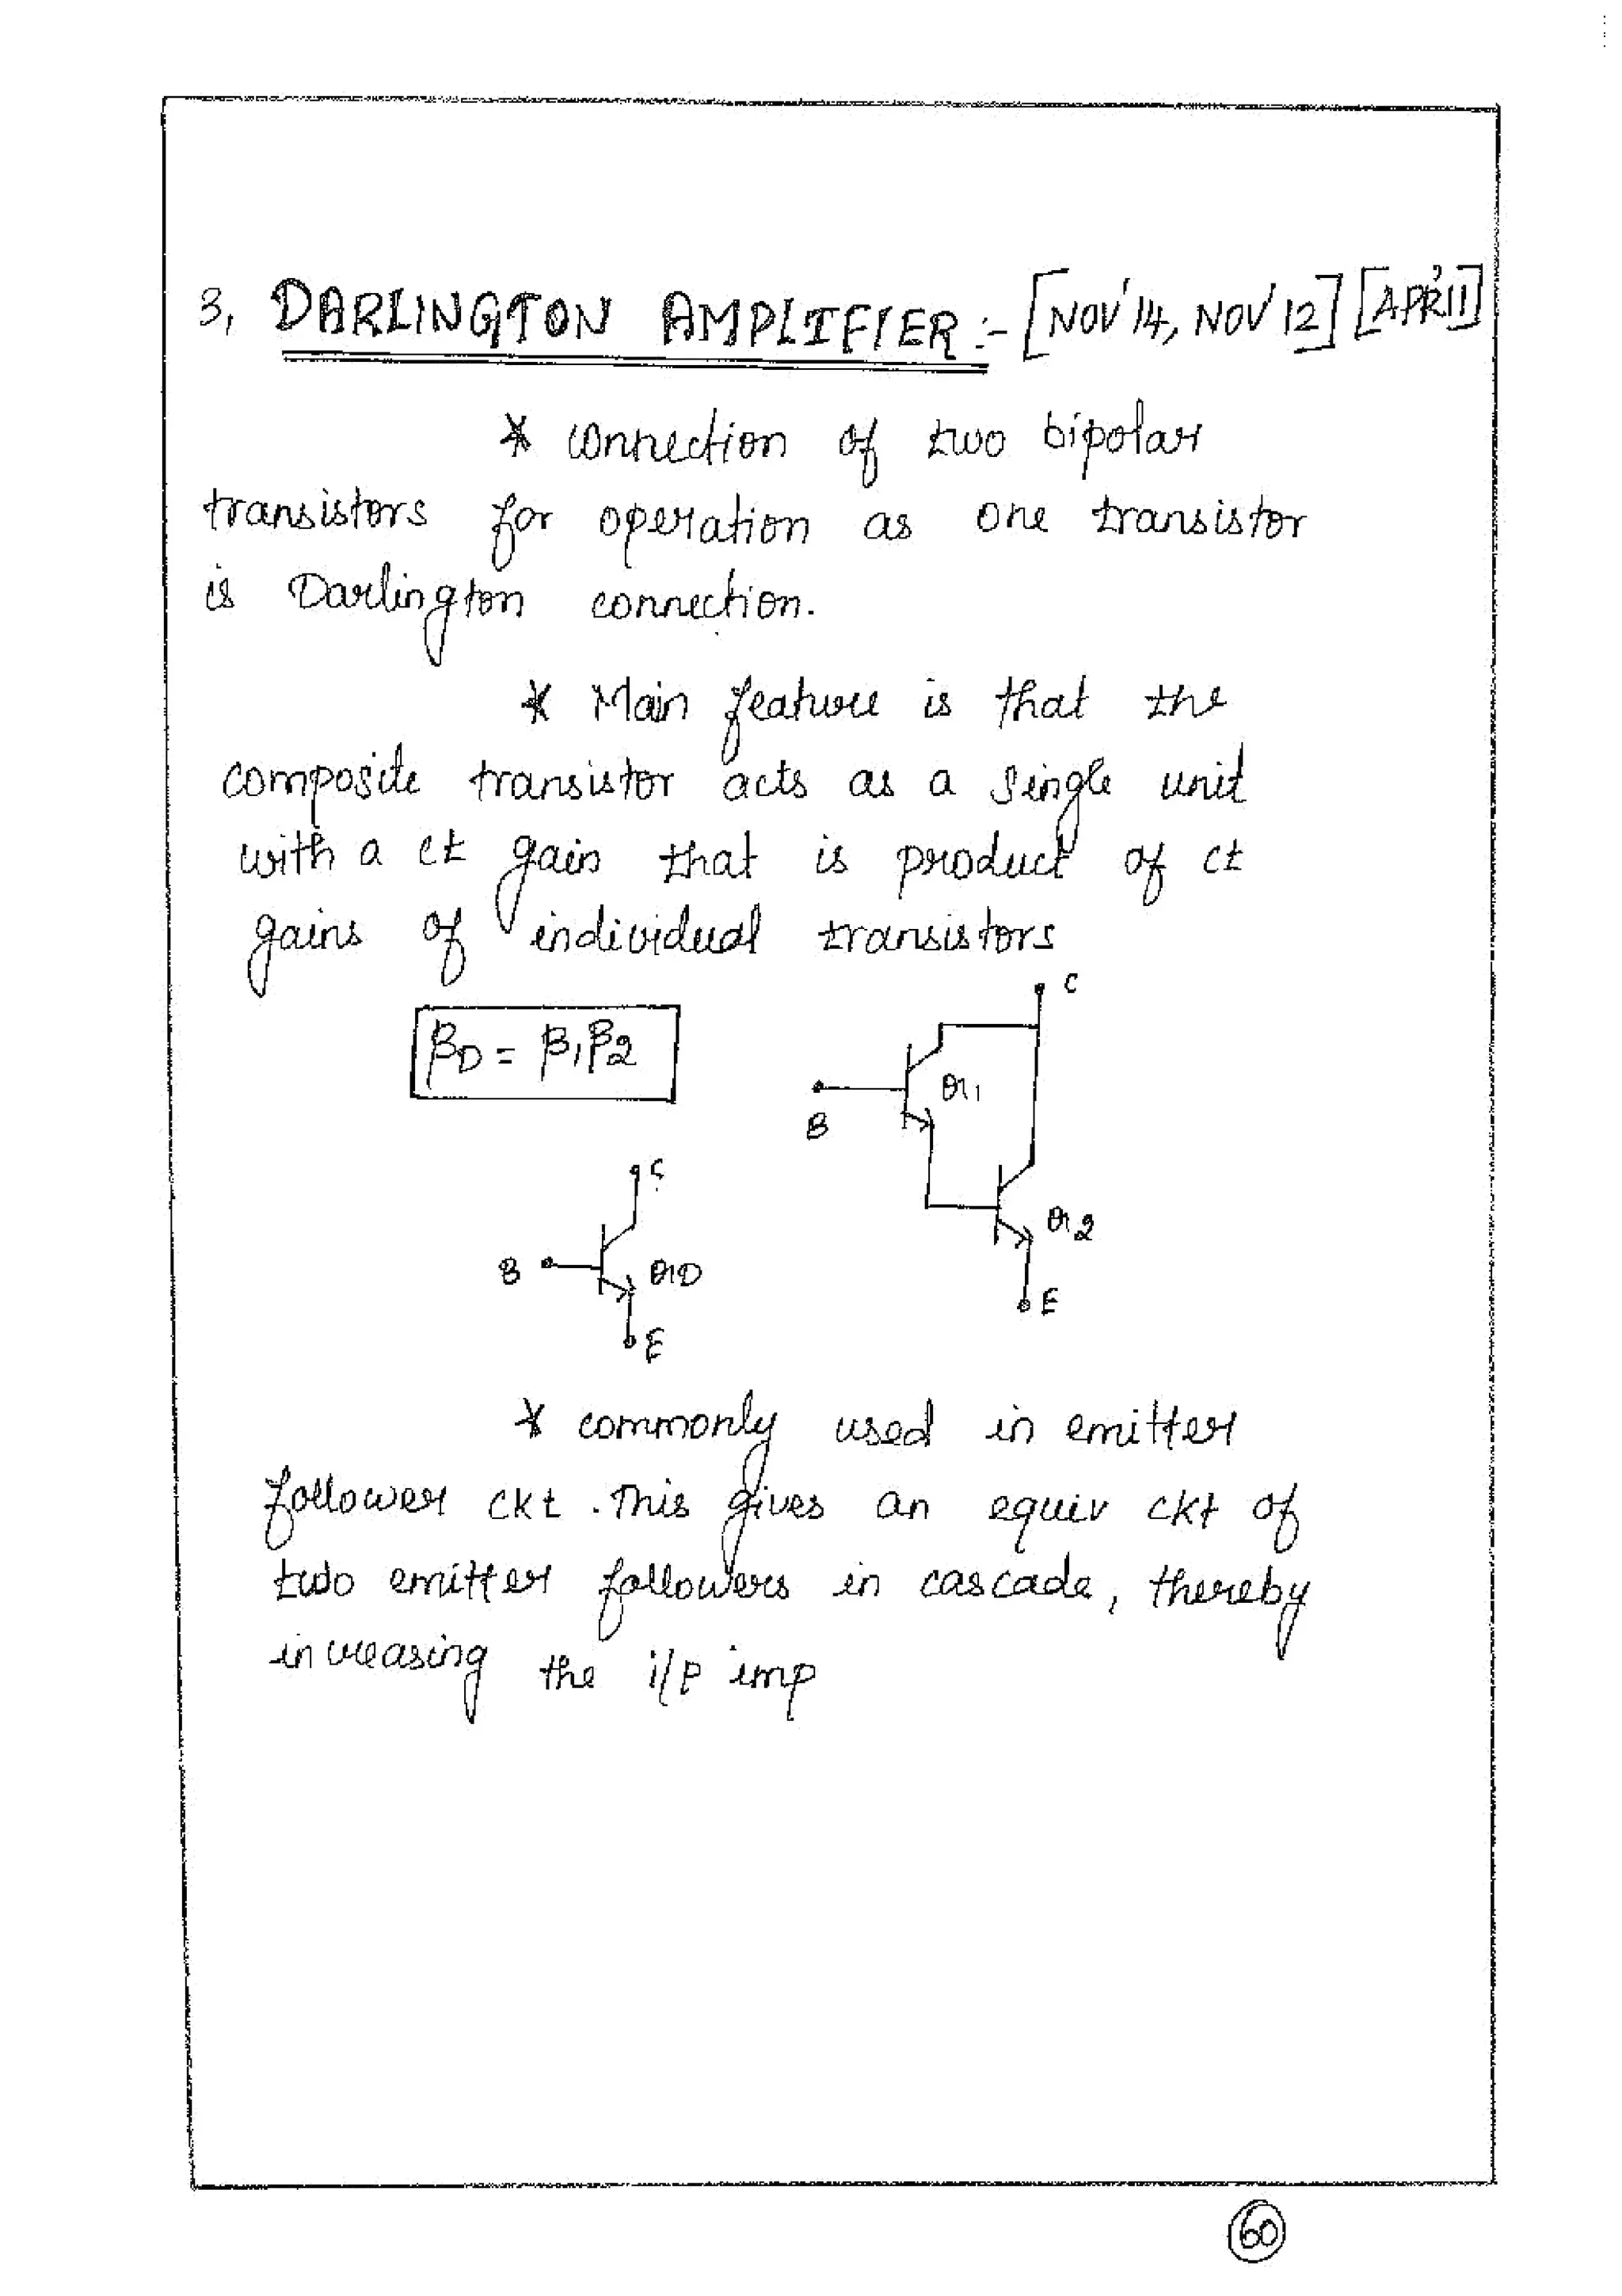 3, DARLINGTON AMPLIFIER :- [NOV'14, NOV'12] [APR'11]
* connection of two bipolar
transistors for operation as one transistor
is Darlington connection.
* Main feature is that the
composite transistor acts as a single unit
with a ct gain that is product of ct
gains of individual transistors
C
βD = β1β2
Q1
B
C
Q2
B
QD
E
E
* commonly used in emitter
follower ckt. This gives an equiv ckt of
two emitter followers in cascade, thereby
increasing the i/p imp
60